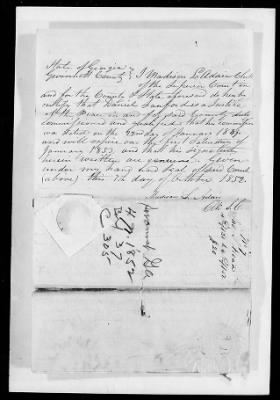 State of Georgia
Gwinnett County } I Madison L Adair Clk
of the Superior Court in
and for the County & State aforesaid do here by
certify that Daniel Sanford is a Justice
of the Peace in and for said County duly
commissioned and qualified that his commission
was dated on the 22nd day of January 1849
and will expire on the first Saturday of
January 1853 and that his signature
herein written are genuine. Given
under my hand and Seal of Said Court
(above) this 7th day of October 1852.
Madison L. Adair
Clk S. C.
Savannah Ga
1852
37
C 305